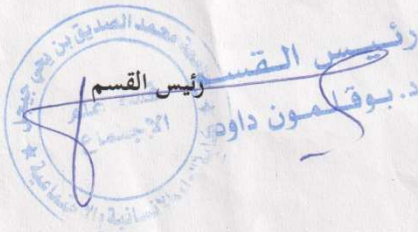 رئيس القسم
رئيس القسم
د. بوقلمون داود
جامعة محمد الصديق بن يحي جيجل
قسم علم
الاجتماع
كلية العلوم الإنسانية والاجتماعية